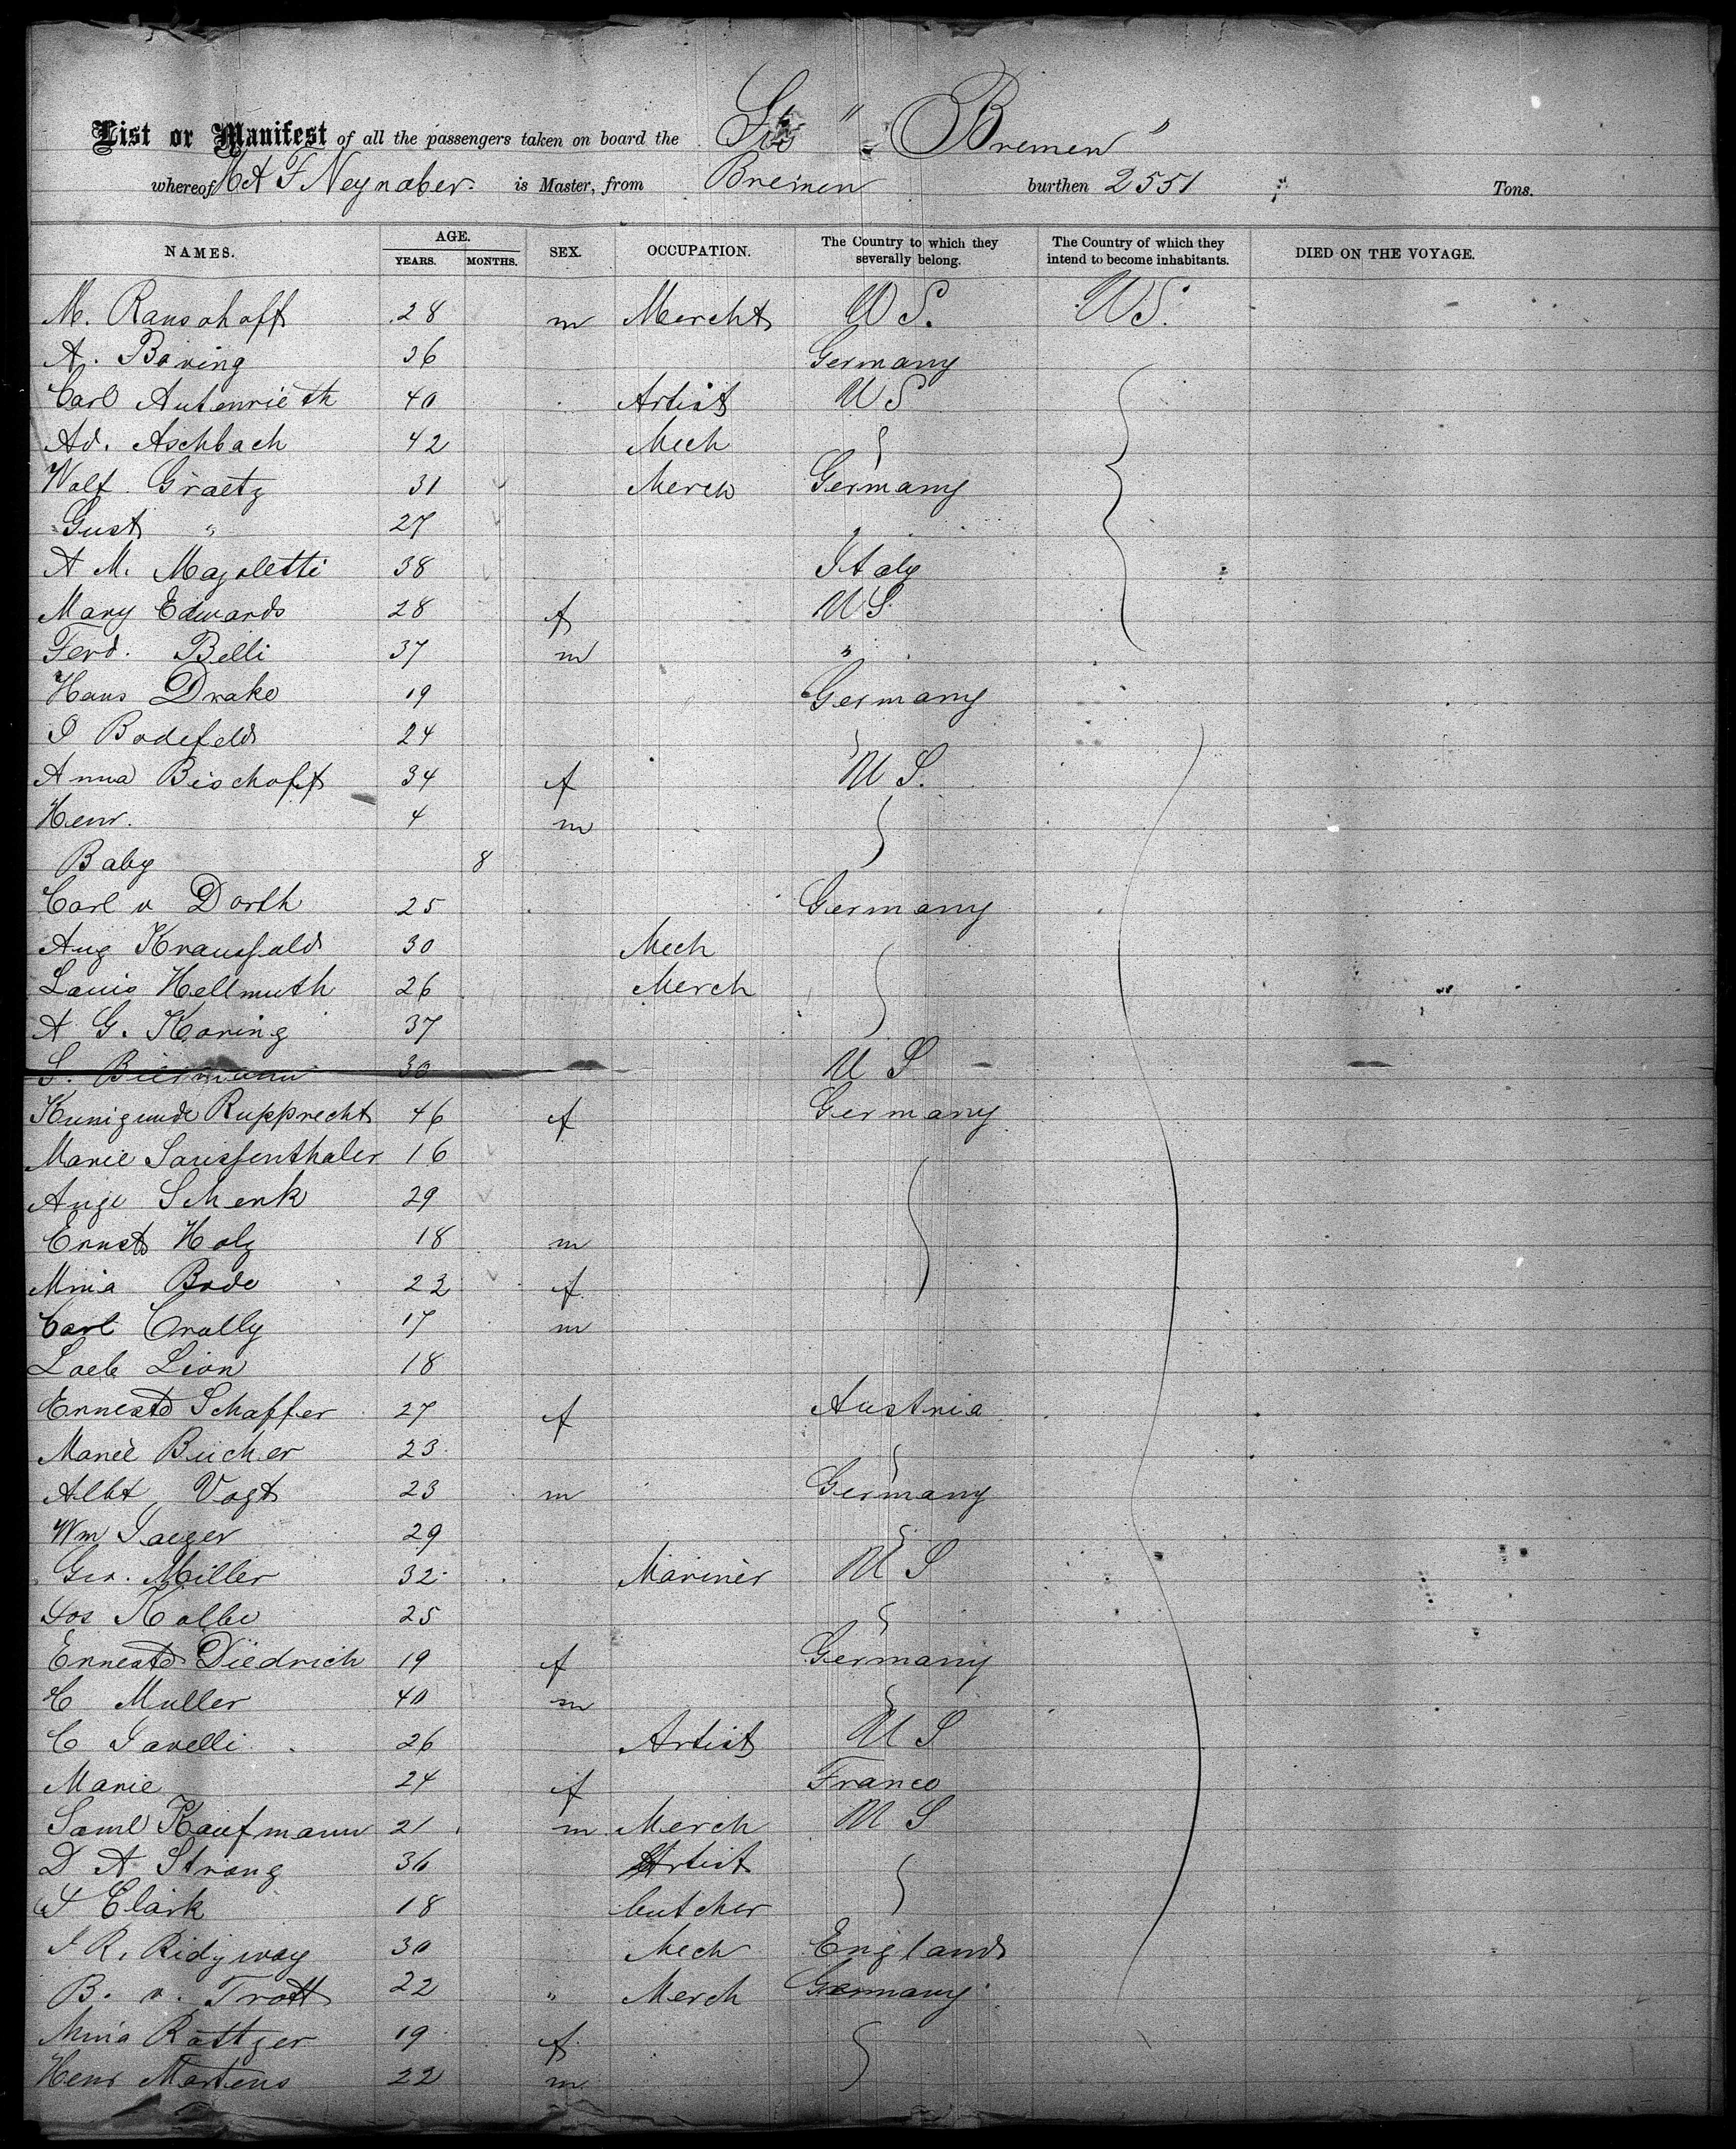 List or Manifest of all the passengers taken on board the Str "Bremen"
whereof H A F Neynaber. is Master, from Bremen burthen 2551 Tons.
NAMES. AGE. SEX. OCCUPATION. The Country to which they severally belong. The Country of which they intend to become inhabitants. DIED ON THE VOYAGE.
YEARS. MONTHS.
M. Ransohoff 28 m Mercht U S. U S.
A. Boving 36 Germany
Carl Autenrieth 40 Artist U S
Ad. Aschbach 42 Mech
Wolf. Graetz 31 Merch Germany
Gust " 27
A M. Majoletti 38 Italy
Mary Edwards 28 f U S.
Ferd. Belli 37 m "
Hans Drake 19 Germany
Bodefeld 24
Anna Bischoff 34 f U S.
Henr. 4 m
Baby 8
Carl v Dorth 25 Germany
Aug 30 Mech
Louis Hellmuth 26 Merch
A G. Koring 37
S. Biermann 30 U S
Kunigunde Rupprecht 46 f Germany
Marie 16
Schenk 29
Ernst Holz 18 m
Mina Bode 23 f
Carl Crolly 17 m
Loeb Lion 18
Ernest Schaffer 27 f Austria
Marie Bücher 23
Albt Vogt 23 m Germany
Wm Jaeger 29
Geo. Miller 32 Mariner U S
Jos Kolbe 25
Ernest Diedrich 19 f Germany
C Muller 40 m
C Javelli 26 Artist U S
Marie 24 f France
Saml Kaufmann 21 m Merch U S
D A Strong 36 Artist
Clark 18 butcher
J R. Ridgway 30 Mech England
B. v. Trott 22 " Merch Germany
Mina Rottger 19 f
Henr Martens 22 m